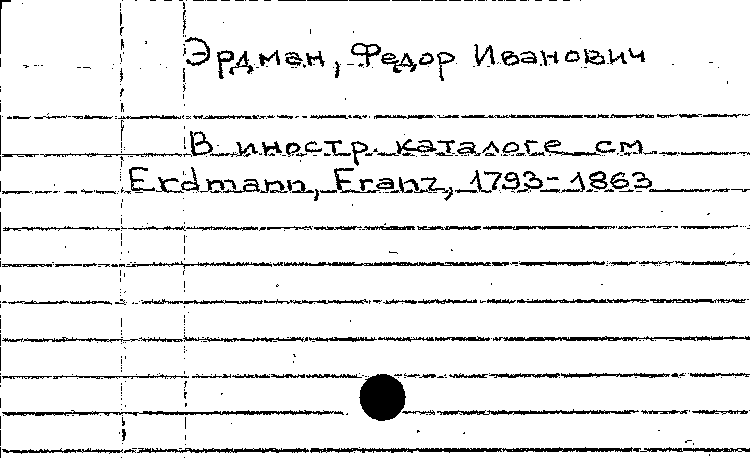 Эрдман, Федор Иванович
В иностр. каталоге см
Erdmann, Franz, 1793-1863